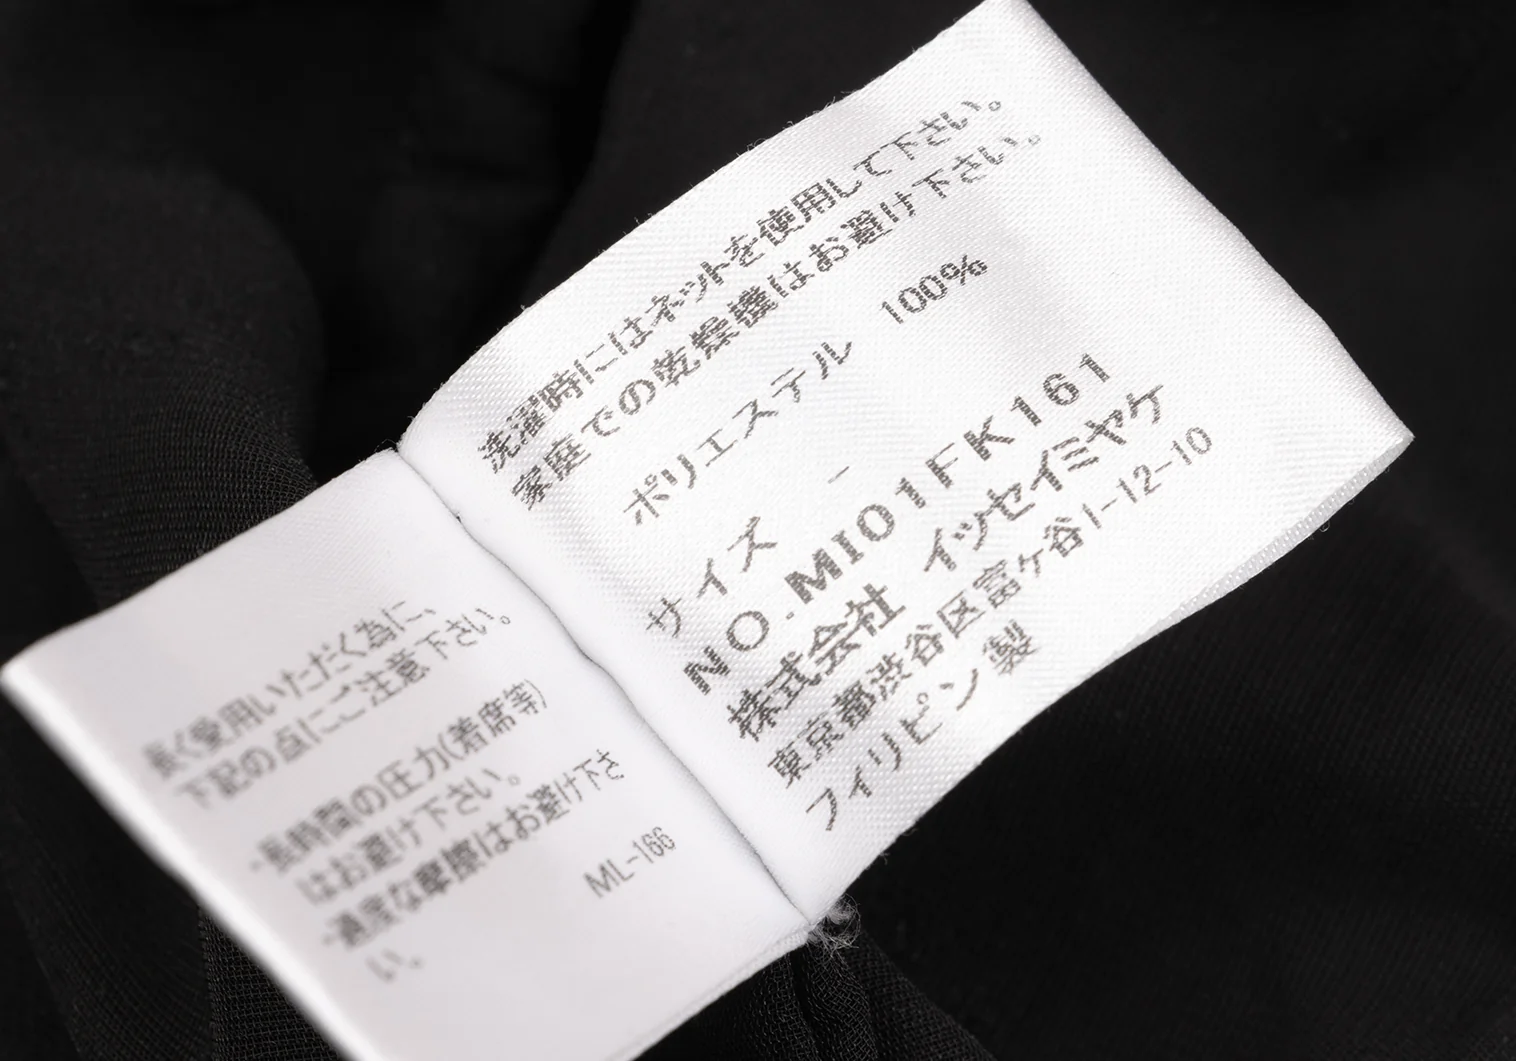 洗濯時にはネットを使用して下さい。
家庭での乾燥機はお避け下さい。
ポリエステル 100%
サイズ -
NO.MI01FK161
株式会社 イッセイミヤケ
東京都渋谷区富ヶ谷1-12-10
フィリピン製
長く愛用いただく為に、
下記の点にご注意下さい。
・長時間の圧力(着席等)
はお避け下さい。
・過度な摩擦はお避け下さ
い。
ML-166